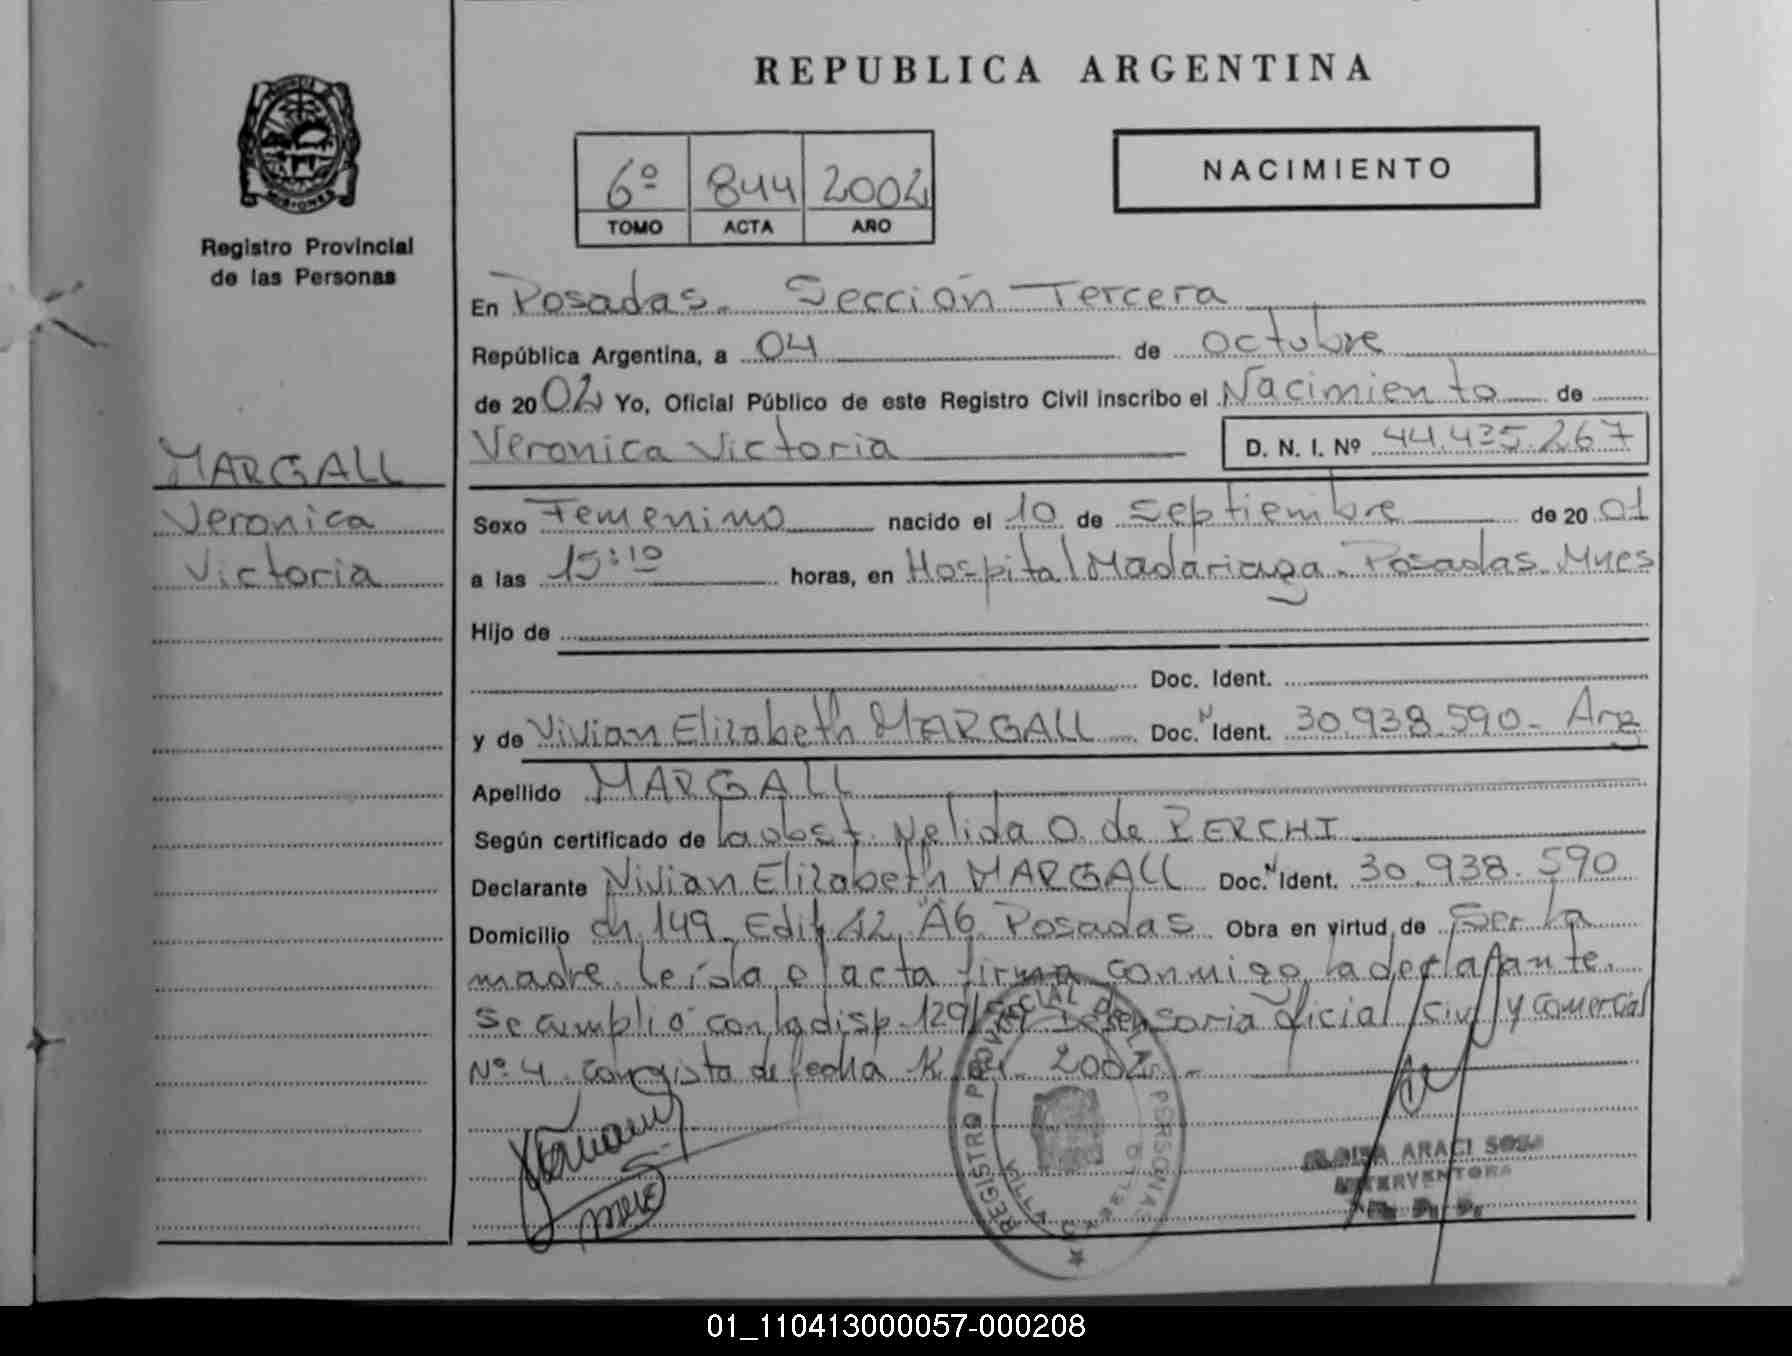 REPUBLICA ARGENTINA
MISIONES
Registro Provincial
de las Personas
6º 844 2002
TOMO ACTA AÑO
NACIMIENTO
En Posadas. Sección Tercera
República Argentina, a 04 de octubre
de 2002 Yo, Oficial Público de este Registro Civil inscribo el Nacimiento de
Veronica Victoria D. N. I. Nº 44.435.267
MARGALL
Veronica
Victoria
Sexo Femenino nacido el 10 de Septiembre de 20 01
a las 15:10 horas, en Hospital Madariaga. Posadas. Mnes
Hijo de
Doc. Ident.
y de Vivian Elizabeth MARGALL Doc. N Ident. 30.938.590- Arg
Apellido MARGALL
Según certificado de la obst. Nelida O. de PERCHI
Declarante Vivian Elizabeth MARGALL Doc. N Ident. 30.938.590
Domicilio ch. 149. Edif 12 "A6 Posadas Obra en virtud de Ser la
madre. leída el acta firma conmigo la declarante.
Se cumplió con la disp. 129 Defensoria Oficial Civil y Comercial
Nº 4. Con vista de fecha 2002.-
REGISTRO PROVINCIAL DE LAS PERSONAS
ARACI SOSA
INTERVENTORA
01_110413000057-000208